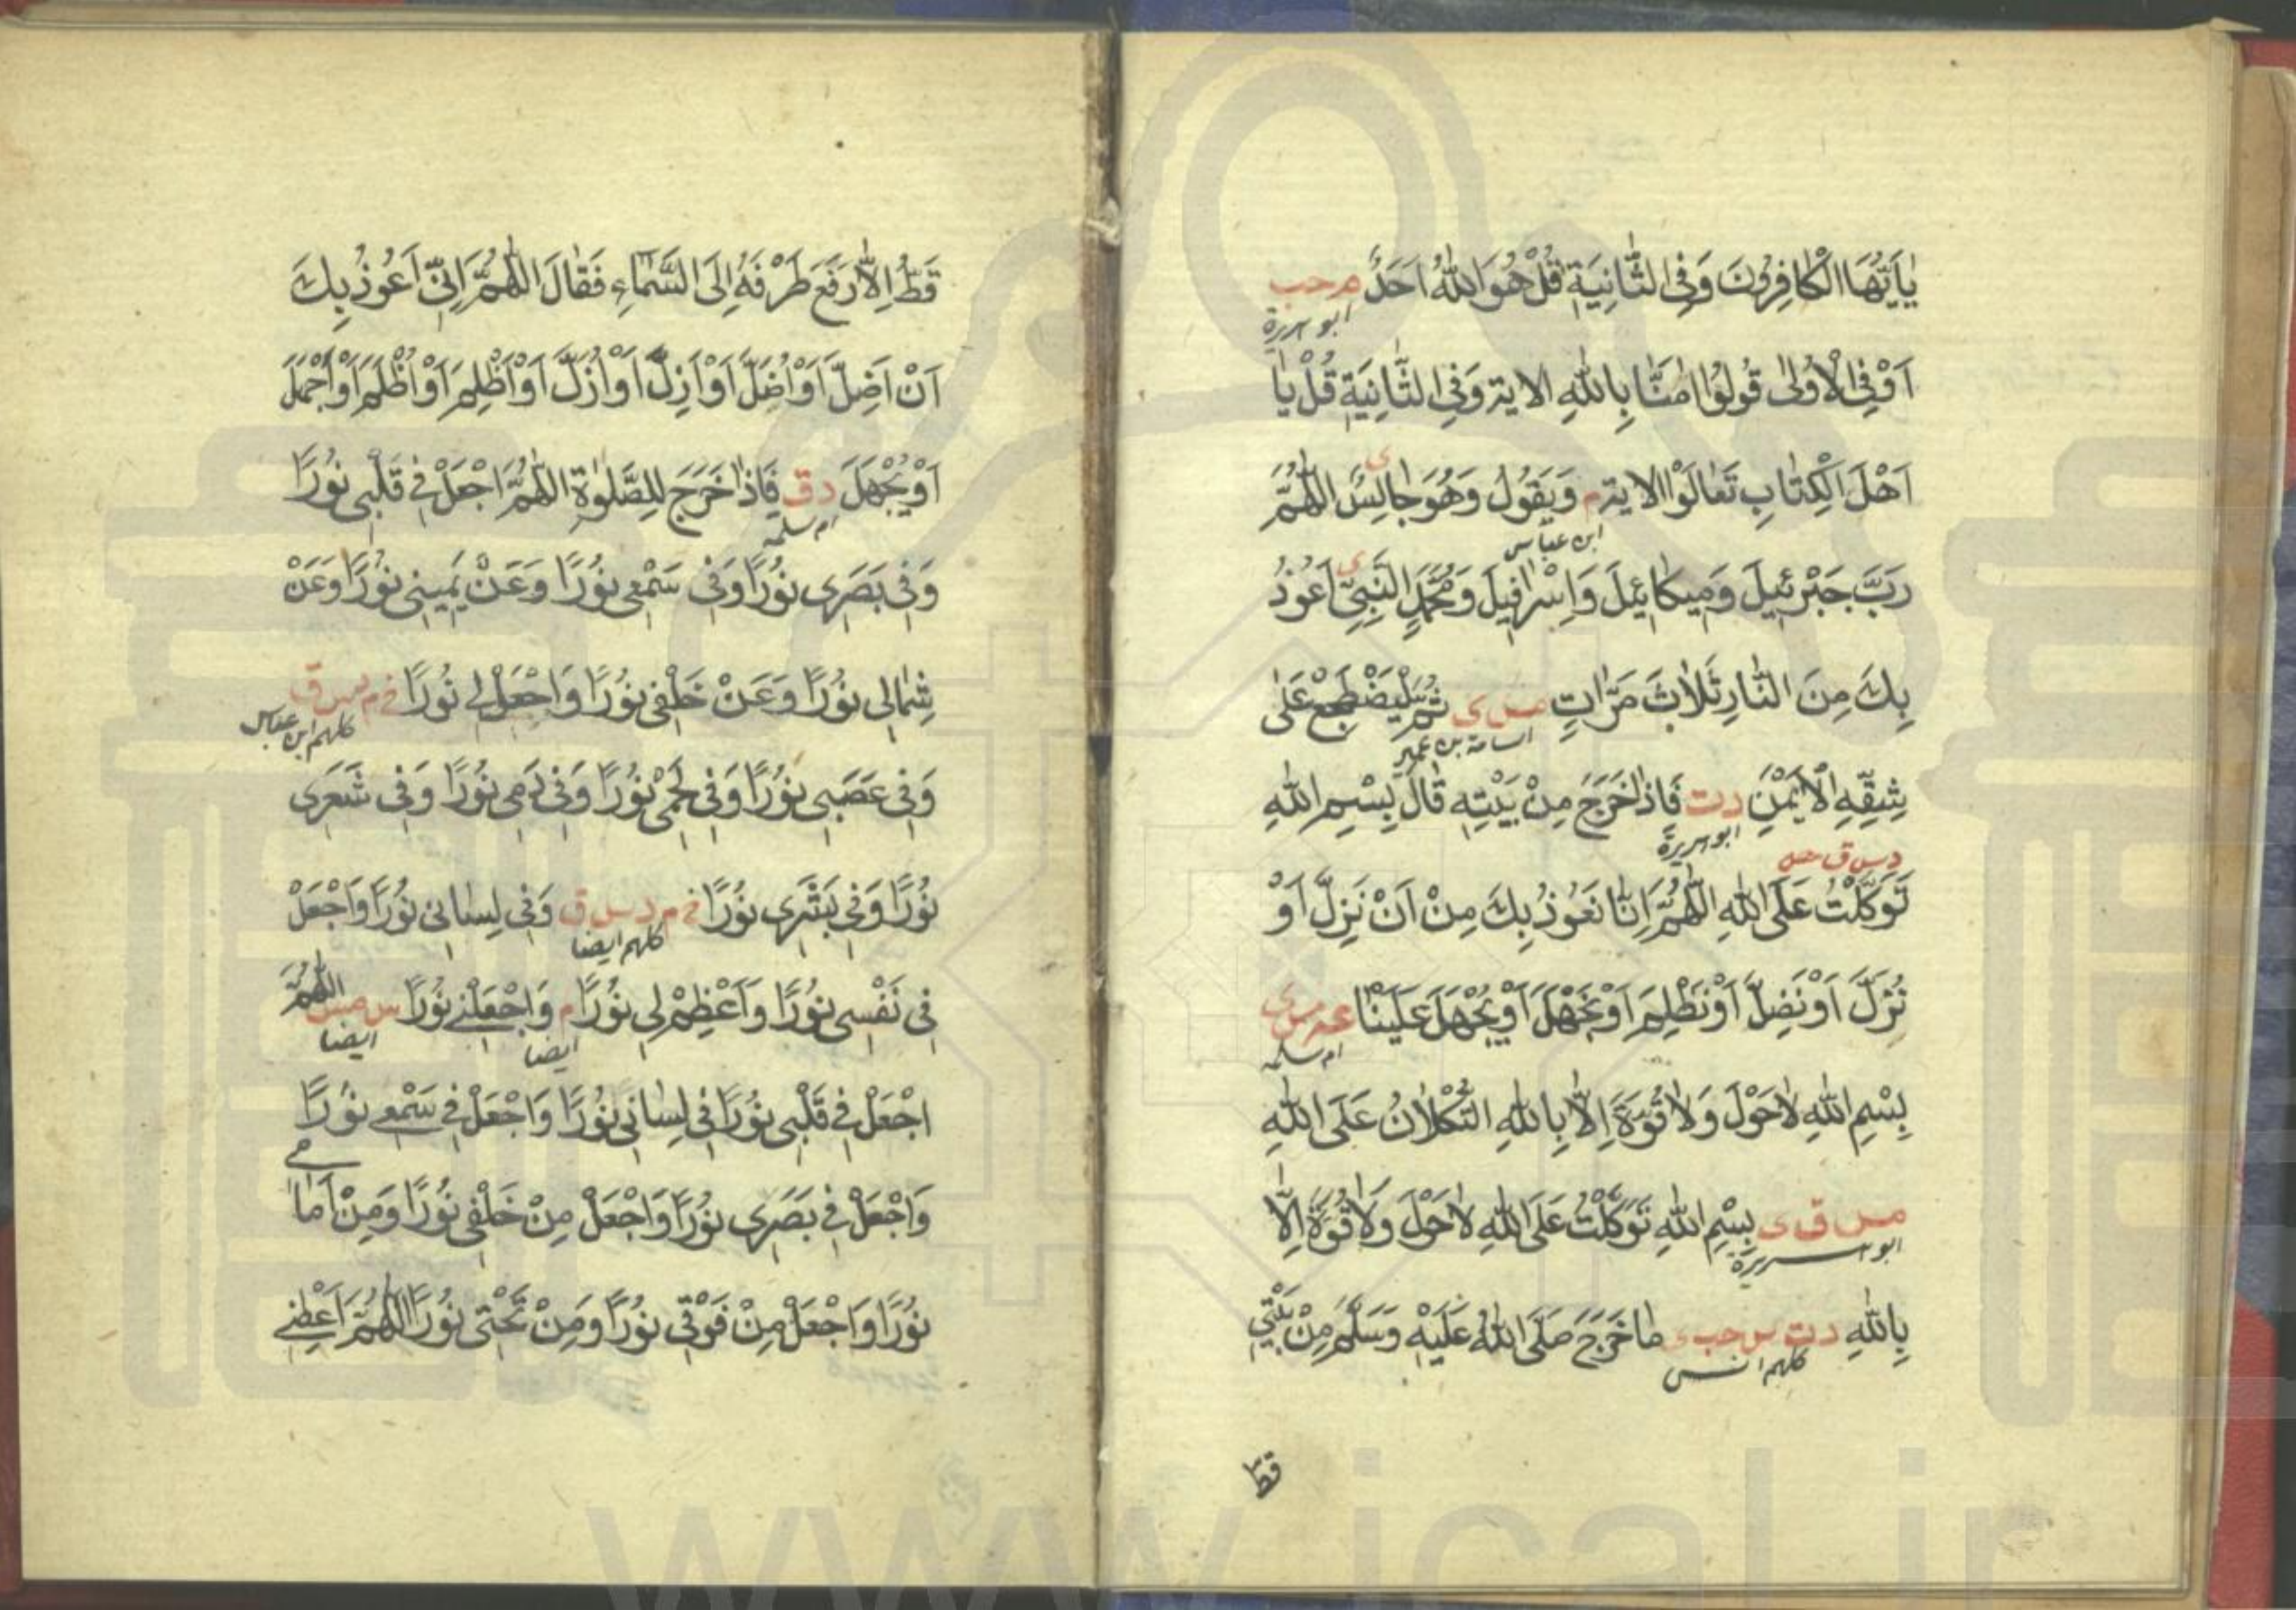 يَا أَيُّهَا الْكَافِرُونَ وَفِي الثَّانِيَةِ قُلْ هُوَ اللّٰهُ اَحَدٌ م حب
ابو هريرة
اَوْ فِي الْاُولٰى قُولُوا اٰمَنَّا بِاللّٰهِ الاية وَفِي الثَّانِيَةِ قُلْ يَا
اَهْلَ الْكِتَابِ تَعَالَوْا الاية م وَيَقُولُ وَهُوَ جَالِسٌ اللّٰهُمَّ
ى
ابن عباس
رَبَّ جَبْرَئِيلَ وَمِيكَائِيلَ وَاِسْرَافِيلَ وَمُحَمَّدٍ النَّبِيِّ اَعُوذُ
ى
بِكَ مِنَ النَّارِ ثَلَاثَ مَرَّاتٍ مس ى ثُمَّ لْيَضْطَجِعْ عَلٰى
اسامة بن عمير
شِقِّهِ الْاَيْمَنِ د ت فَاِذَا خَرَجَ مِنْ بَيْتِهِ قَالَ بِسْمِ اللّٰهِ
ابو هريرة
د س ق مس
تَوَكَّلْتُ عَلَى اللّٰهِ اللّٰهُمَّ اِنَّا نَعُوذُ بِكَ مِنْ اَنْ نَزِلَّ اَوْ
نُزَلَّ اَوْ نَضِلَّ اَوْ نَظْلِمَ اَوْ نَجْهَلَ اَوْ يُجْهَلَ عَلَيْنَا عه مس ى
ام سلمه
بِسْمِ اللّٰهِ لَا حَوْلَ وَلَا قُوَّةَ اِلَّا بِاللّٰهِ التُّكْلَانُ عَلَى اللّٰهِ
مس ق ى بِسْمِ اللّٰهِ تَوَكَّلْتُ عَلَى اللّٰهِ لَا حَوْلَ وَلَا قُوَّةَ اِلَّا
ابو هريرة
بِاللّٰهِ د ت س حب ى مَا خَرَجَ صَلَّى اللّٰهُ عَلَيْهِ وَسَلَّمَ مِنْ بَيْتِي
كلهم انس
قط
قَطُّ اِلَّا رَفَعَ طَرْفَهُ اِلَى السَّمَاءِ فَقَالَ اللّٰهُمَّ اِنِّي اَعُوذُ بِكَ
اَنْ اَضِلَّ اَوْ اُضَلَّ اَوْ اَزِلَّ اَوْ اُزَلَّ اَوْ اَظْلِمَ اَوْ اُظْلَمَ اَوْ اَجْهَلَ
اَوْ يُجْهَلَ د ق فَاِذَا خَرَجَ لِلصَّلٰوةِ اللّٰهُمَّ اجْعَلْ فِي قَلْبِي نُورًا
ام سلمه
وَفِي بَصَرِي نُورًا وَفِي سَمْعِي نُورًا وَعَنْ يَمِينِي نُورًا وَعَنْ
شِمَالِي نُورًا وَعَنْ خَلْفِي نُورًا وَاجْعَلْ لِي نُورًا خ م س ق
كلهم ابن عباس
وَفِي عَصَبِي نُورًا وَفِي لَحْمِي نُورًا وَفِي دَمِي نُورًا وَفِي شَعَرِي
نُورًا وَفِي بَشَرِي نُورًا خ م د س ق وَفِي لِسَانِي نُورًا وَاجْعَلْ
كلهم ايضا
فِي نَفْسِي نُورًا وَاَعْظِمْ لِي نُورًا م وَاجْعَلْنِي نُورًا س مس اللّٰهُمَّ
ايضا ايضا
اجْعَلْ فِي قَلْبِي نُورًا فِي لِسَانِي نُورًا وَاجْعَلْ فِي سَمْعِي نُورًا
وَاجْعَلْ فِي بَصَرِي نُورًا وَاجْعَلْ مِنْ خَلْفِي نُورًا وَمِنْ اَمَامِي
نُورًا وَاجْعَلْ مِنْ فَوْقِي نُورًا وَمِنْ تَحْتِي نُورًا اللّٰهُمَّ اَعْطِنِي
www.ical.ir